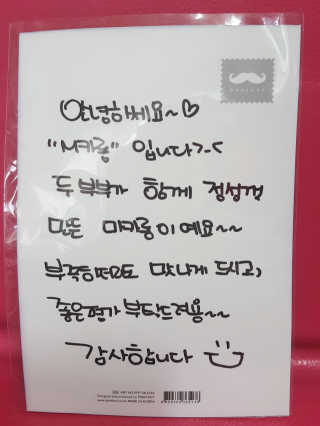 안녕하세요~♡
"M카롱" 입니다>-<
두 부부가 함께 정성껏
만든 마카롱이예요~~
부족하더라도 맛나게 드시고,
좋은평가 부탁드려용~~
감사합니다
MADE IN KOREA